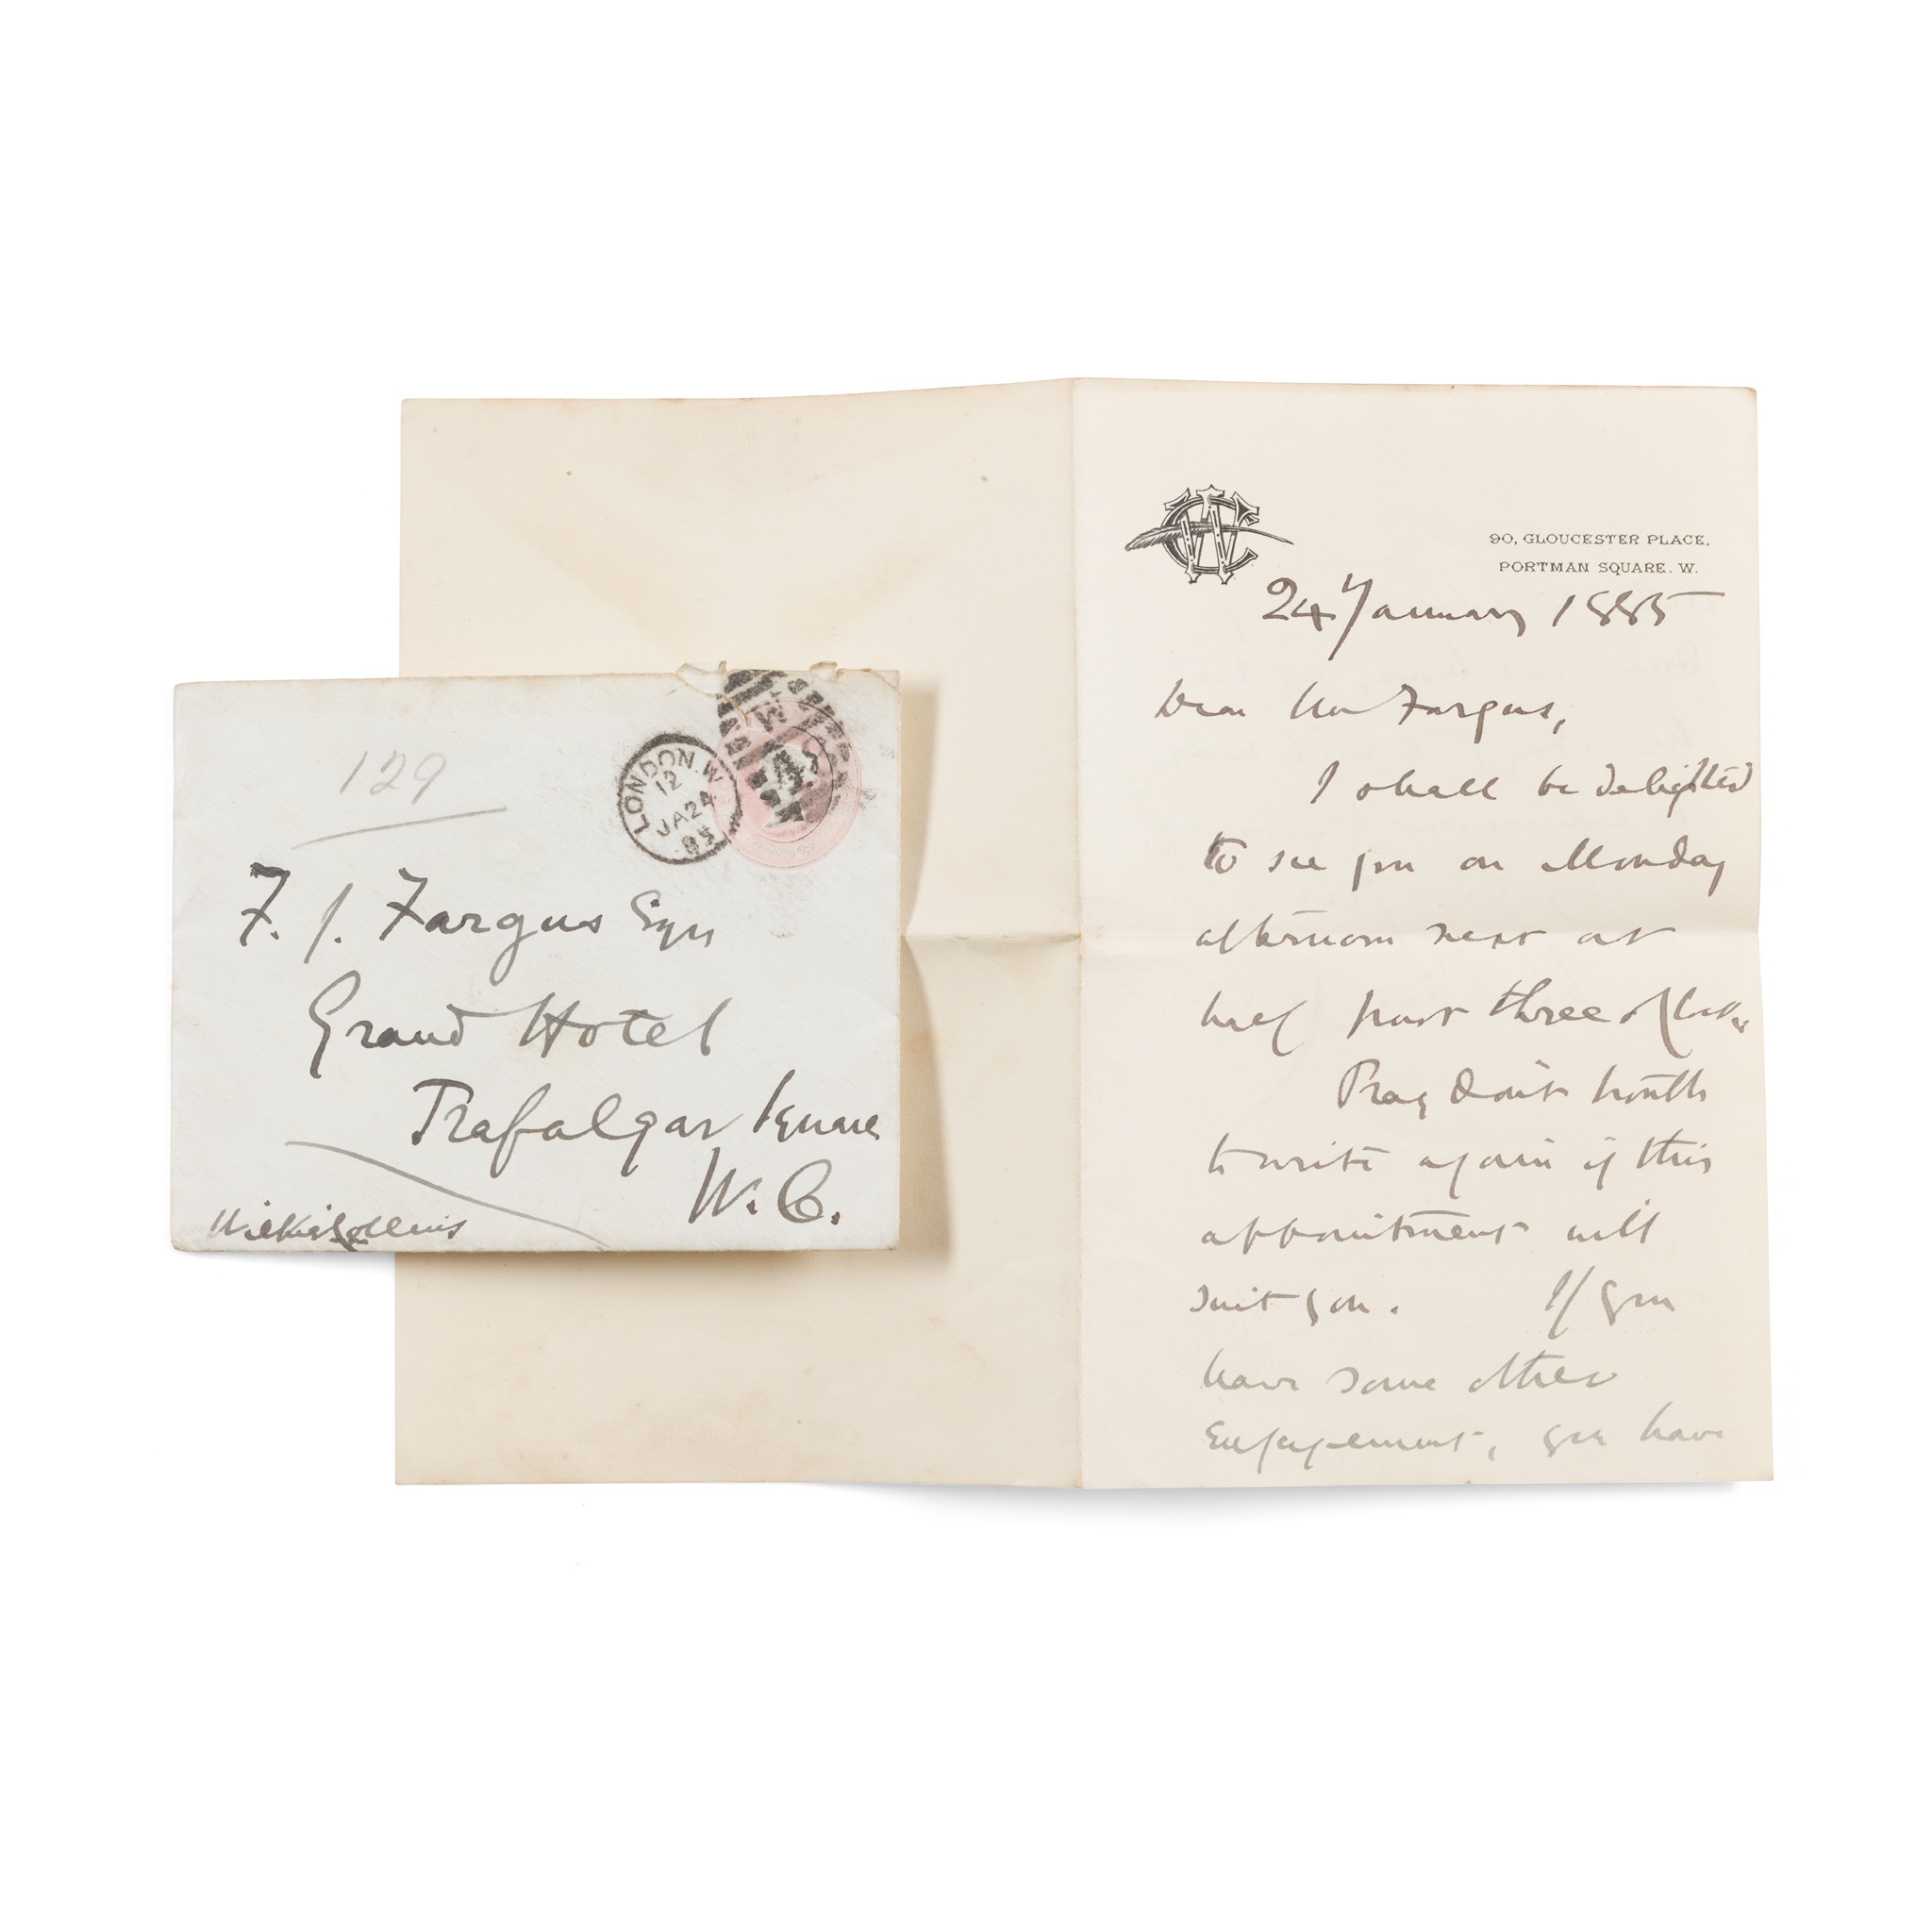 129
LONDON. W
12
JA 24
85
W
F. J. Fargus Esqre
Grand Hotel
Trafalgar Square
W. C.
Wilkie Collins
WC
90, GLOUCESTER PLACE,
PORTMAN SQUARE. W.
24 January 1885
Dear Mr Fargus,
I shall be delighted
to see you on Monday
afternoon next at
half past three o'clock.
Pray don't trouble
to write again if this
appointment will
suit you. If you
have some other
engagement, you have